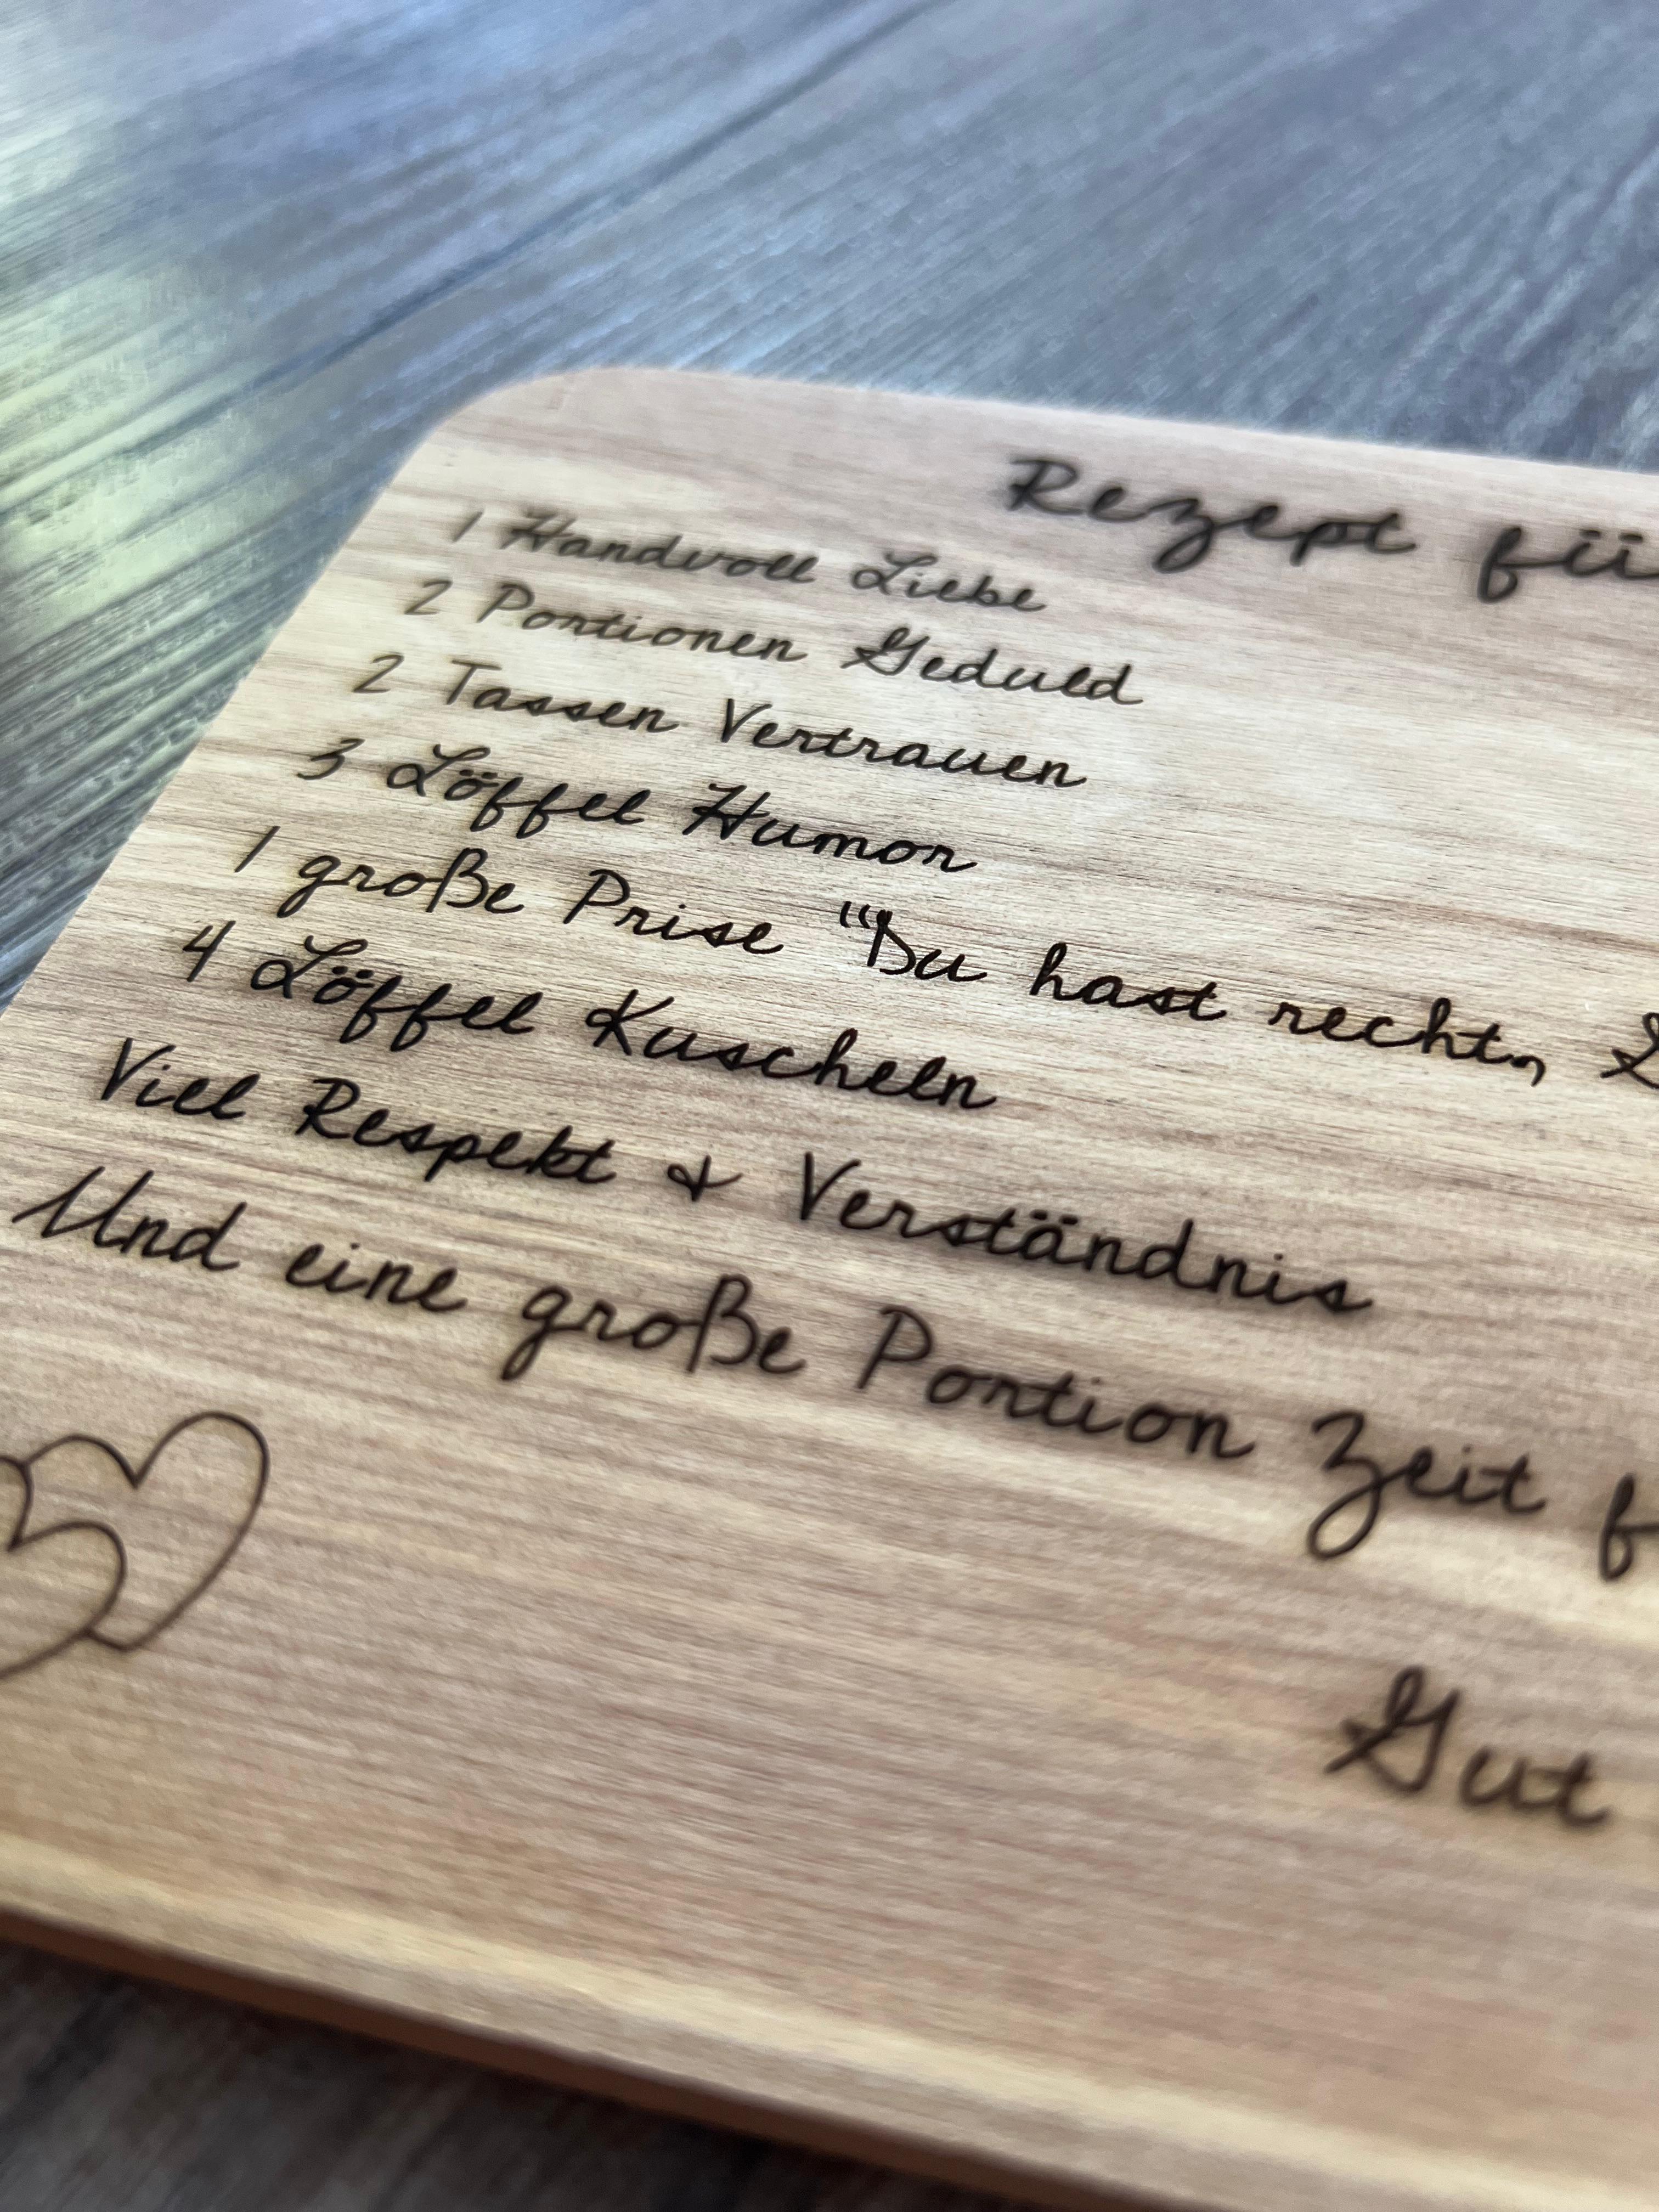 Rezept fü
1 Handvoll Liebe
2 Portionen Geduld
2 Tassen Vertrauen
3 Löffel Humor
1 große Prise "Du hast recht,
4 Löffel Kuscheln
Viel Respekt & Verständnis
Und eine große Portion Zeit f
Gut